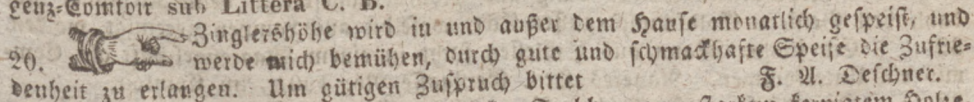 genz-Comtoir sub Littera C. B.
Zinglershöhe wird in und außer dem Hause monatlich gespeist, und
20. werde mich bemühen, durch gute und schmackhafte Speise die Zufrie-
denheit zu erlangen. Um gütigen Zuspruch bittet F. A. Deschner.